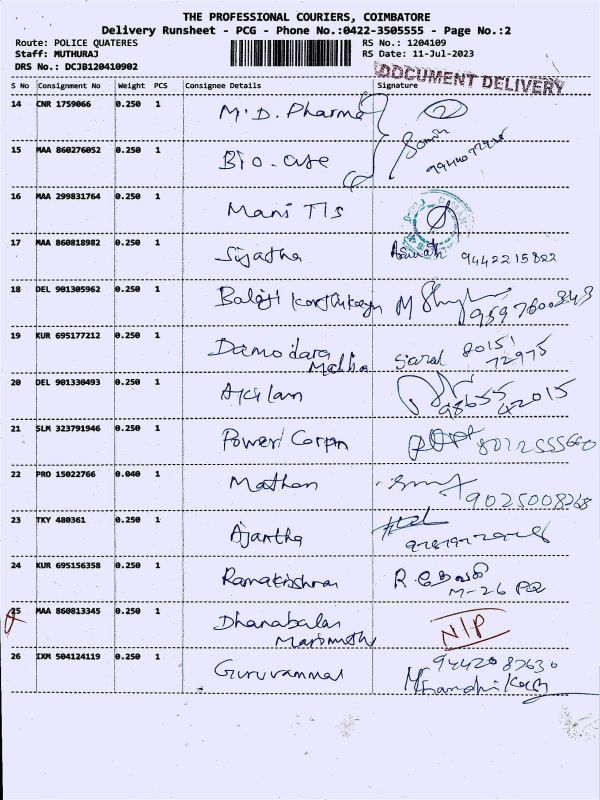 THE PROFESSIONAL COURIERS, COIMBATORE
Delivery Runsheet - PCG - Phone No.:0422-3505555 - Page No.:2
Route: POLICE QUATERES
RS No.: 1204109
Staff: MUTHURAJ
RS Date: 11-Jul-2023
DRS No.: DCJB120410902
DOCUMENT DELIVERY
S No Consignment No Weight PCS Consignee Details Signature
14 CNR 1759066 0.250 1 M.D. Pharma
15 MAA 860276052 0.250 1 Bio-
16 MAA 299831764 0.250 1 Mani Tls
17 MAA 860818982 0.250 1 Sujatha 9442215822
18 DEL 901305962 0.250 1 Balaji Karthikeyn
19 KUR 695177212 0.250 1 Damodara Saral 8015
72975
20 DEL 901330493 0.250 1 Akilan 98655
42015
21 SLM 323791946 0.250 1 Power Corpn
22 PRO 15022766 0.040 1 Mathan
9025008268
23 TKY 480361 0.250 1 Ajantha
24 KUR 695156358 0.250 1 Ramakrishnan R. தேவகி
M-26 PQ
25 MAA 860813345 0.250 1 Dhanabalan
Marimuthu
N/P
26 IXM 504124119 0.250 1 Guruvammal 9442087630